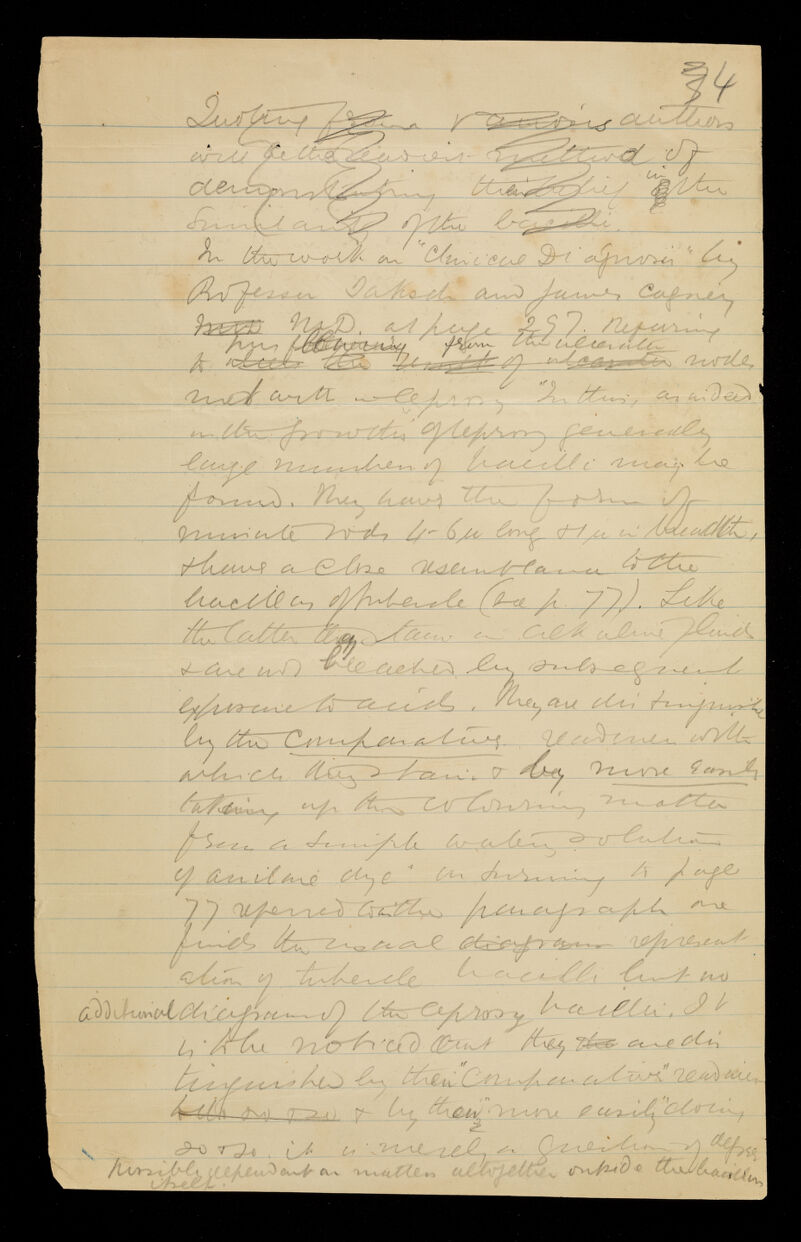 34
Quoting from various authors
will be the easiest method of
demonstrating their belief in the
similarity of the bacilli.
In the work on "Clinical Diagnosis" by
Professor Jaksch and James Cagney
M.D. at page 297. Referring
pus flowing from the ulcerated
to of nodes
met with in leprosy "In this, as indeed
in the growths of leprosy generally
large numbers of bacilli may be
found. They have the form of
minute rods 4-6µ long & 1µ in breadth,
& have a close resemblance to the
bacillus of tubercle (see p. 77). Like
the latter they stain in alkaline fluids
& are not bleached by subsequent
exposure to acids. They are distinguished
by the comparative readiness with
which they stain & by more easily
taking up the colouring matter
from a simple watery solution
of aniline dye" on turning to page
77 referred to in the paragraph one
finds the usual diagram represent
ation of tubercle bacilli but no
additional diagram of the leprosy bacilli. It
is to be noticed that they the are dis
tinguished by their "Comparative" readiness
& by their "more easily" doing
so & so. it is merely a question of degree
possibly dependant on matters altogether outside the bacillus
itself.